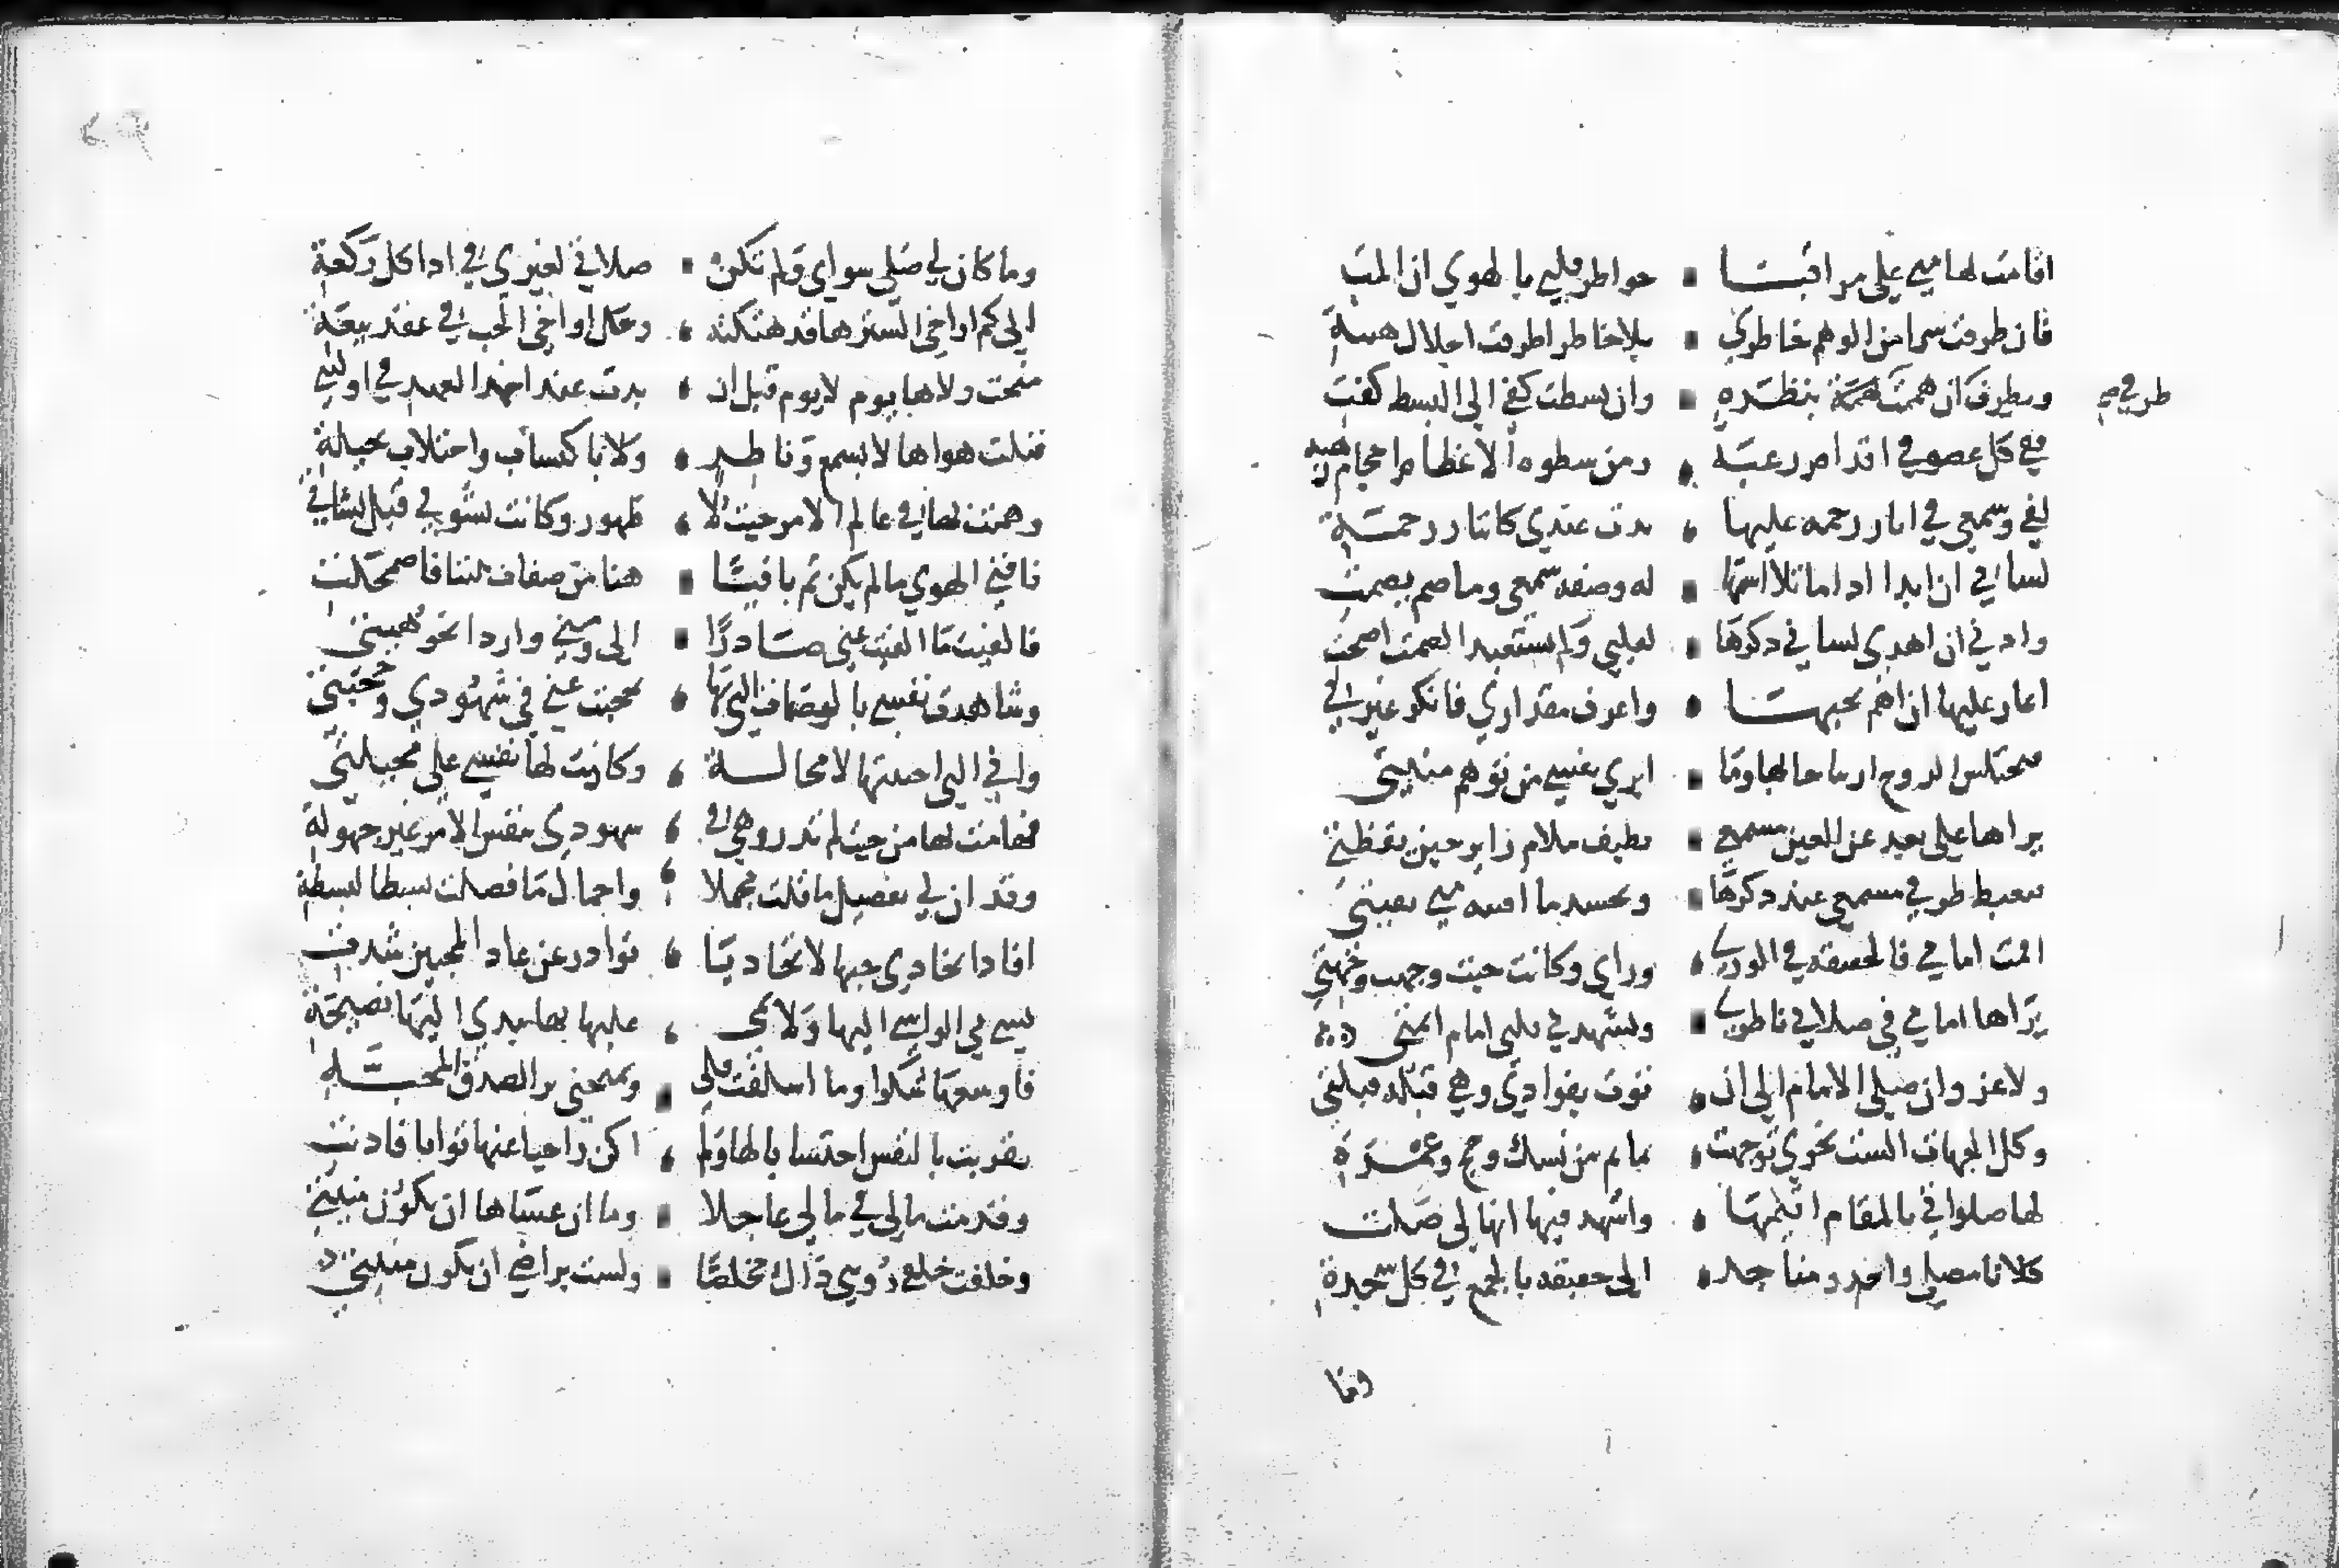 اقامت لها مني علي مراقبا ▪ خواطر قلبي بالهوي ان المت
فان طرقت سرا من الوهم خاطري ▪ بلا خاطر اطرقت اجلال هيبة
ويطرف ان هممت همة بنظره ▪ وان بسطت كفي الى البسط كفت
طرفي صح
ففي كل عضو في اقدام رغبة ▪ ومن سطوه الاعظام احجام هيبه
لفي وسمعي في اثار رحمه عليها ▪ بدت عندي كاثار رحمة
لساني ان ابدا اذا ما تلا اسمها ▪ له وصفه سمعي وما صم يصمت
واذني ان اهدى لساني ذكرها ▪ لقلبي ولم يستعبد الصمت اصمت
اغار عليها ان اهم بحبها ▪ واعرف مقداري فانكر غيرتي
فتختلس الروح ارتياحا لها وما ▪ ابري نفسي من توهم منيتي
يراها على بعد عن العين مسمعي ▪ بطيف ملام زاير حين يقظتي
فيغبط طرفي مسمعي عند ذكرها ▪ وتحسد ما افنته مني بقيتي
اممت امامي في الحقيقه فالوري ▪ وراى وكانت حيث وجهت وجهتي
يراها امامي في صلاتي ناظري ▪ ويشهدني قلبي امام ايمتي
ولا غرو ان صلى الامام الي ان ▪ ثوت بفوادي وهي قبله قبلتي
وكل الجهات الست نحوي توجهت ▪ بما تم من نسك وحج وعمرة
لها صلواتي بالمقام اقيمها ▪ واشهد فيها انها لى صلت
كلانا مصلي واحد ساجد ▪ الى حقيقه بالجمع في كل سجدة
وما
وما كان لي صلى سواي ولم تكن ▪ صلاتي لغيري في ادا كل ركعة
الى كم اواخي الستر ها قد هتكته ▪ وحل اواخي الحب في عقد بيعة
منحت ولاها يوم لا يوم قبل ان ▪ بدت عند اخذ العهد في اوليتي
فنلت هواها لا بسمع وناظر ▪ ولا باكتساب واجتلاب جبلة
وهمت بها في عالم الامر حيث لا ▪ ظهور وكانت نشوتي قبل نشاتي
فافني الهوي ما لم يكن ثم باقيا ▪ هنا من صفات بيننا فاضمحلت
فالفيت ما القيت عني صادرا ▪ الى ومني واردا نحو مهجتي
وشاهدت نفسي بالصفات التي بها ▪ تحجبت عني في شهودي وحجبتي
واني التي احببتها لا محالة ▪ وكانت لها نفسي علي محيلتي
فهامت لها من حيث لم تدر وهي في ▪ شهودى بنفس الامر غير جهولة
وقد ان لي تفصيل ما قلت مجملا ▪ واجمال ما فصلت بسطا لبسطة
افاد اتخادى حبها لاتحادنا ▪ نوادر عن عاد المحبين شذت
يشي بي الواشي اليها ولايمي ▪ عليها بها يبدي اليها نصيحة
فاوسعها شكرا وما اسلفت قلى ▪ وتمنحني برا لصدق المحبة
تقربت بالنفس احتسابا لها ولم ▪ اكن راجيا عنها ثوابا فادنت
وقدمت مالي في مالي عاجلا ▪ وما ان عساها ان تكون منيلتي
وخلفت خلفي رويتي ذاك مخلصا ▪ ولست براضي ان تكون منيلتي